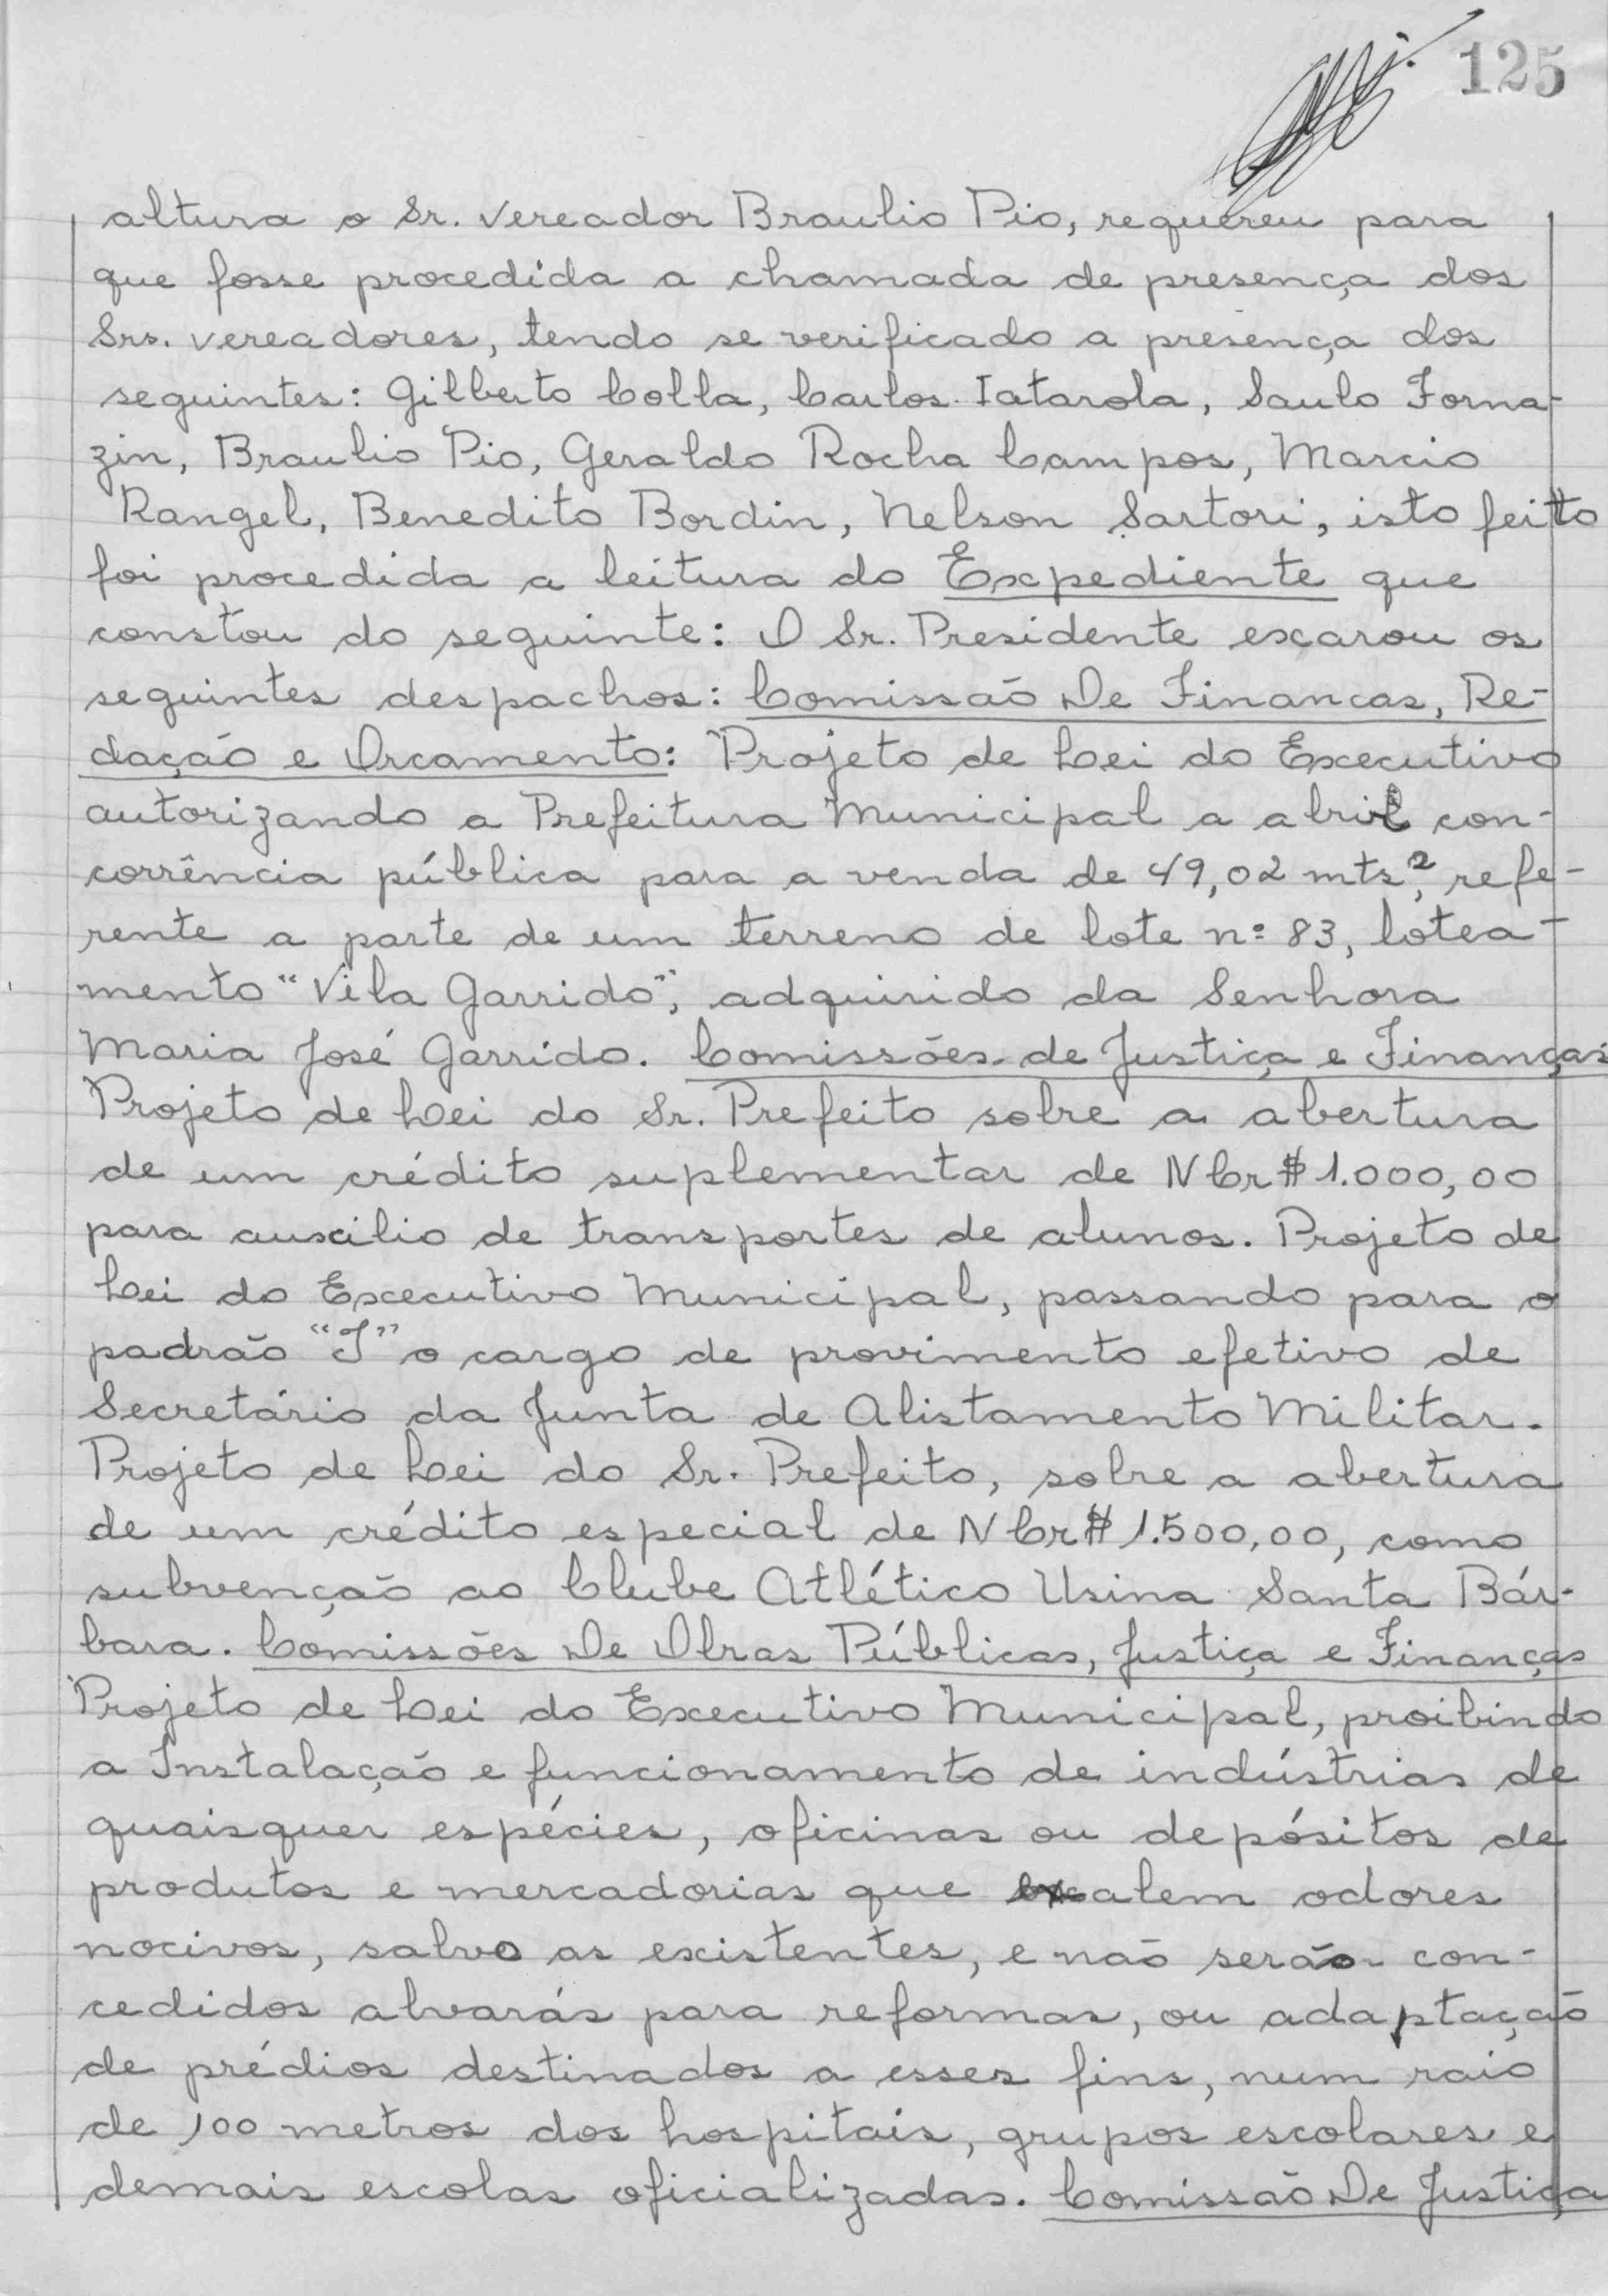 125
altura o Sr. vereador Braulio Pio, requereu para
que fosse procedida a chamada de presença dos
Srs. vereadores, tendo se verificado a presença dos
seguintes: Gilberto Colla, Carlos Iatarola, Saulo Forna-
zin, Braulio Pio, Geraldo Rocha Campos, Marcio
Rangel, Benedito Bordin, Nelson Sartori, isto feito
foi procedida a leitura do Expediente que
constou do seguinte: O Sr. Presidente exarou os
seguintes despachos: Comissão De Financas, Re-
dação e Orcamento: Projeto de Lei do Executivo
autorizando a Prefeitura Municipal a abrir con-
corrência pública para a venda de 49,02 mts², refe-
rente a parte de um terreno de lote nº 83, lotea-
mento "Vila Garrido", adquirido da Senhora
Maria José Garrido. Comissões de Justiça e Finanças
Projeto de Lei do Sr. Prefeito sobre a abertura
de um crédito suplementar de NCr$ 1.000,00
para auxilio de transportes de alunos. Projeto de
Lei do Executivo Municipal, passando para o
padrão "J" o cargo de provimento efetivo de
Secretário da Junta de Alistamento Militar.
Projeto de Lei do Sr. Prefeito, sobre a abertura
de um crédito especial de NCr$ 1.500,00, como
subvenção ao Clube Atlético Usina Santa Bár-
bara. Comissões De Obras Públicas, Justiça e Finanças
Projeto de Lei do Executivo Municipal, proibindo
a Instalação e funcionamento de indústrias de
quaisquer espécies, oficinas ou depósitos de
produtos e mercadorias que exalem odores
nocivos, salvo as existentes, e não serão con-
cedidos alvarás para reformas, ou adaptação
de prédios destinados a esses fins, num raio
de 100 metros dos hospitais, grupos escolares e
demais escolas oficializadas. Comissão De Justiça